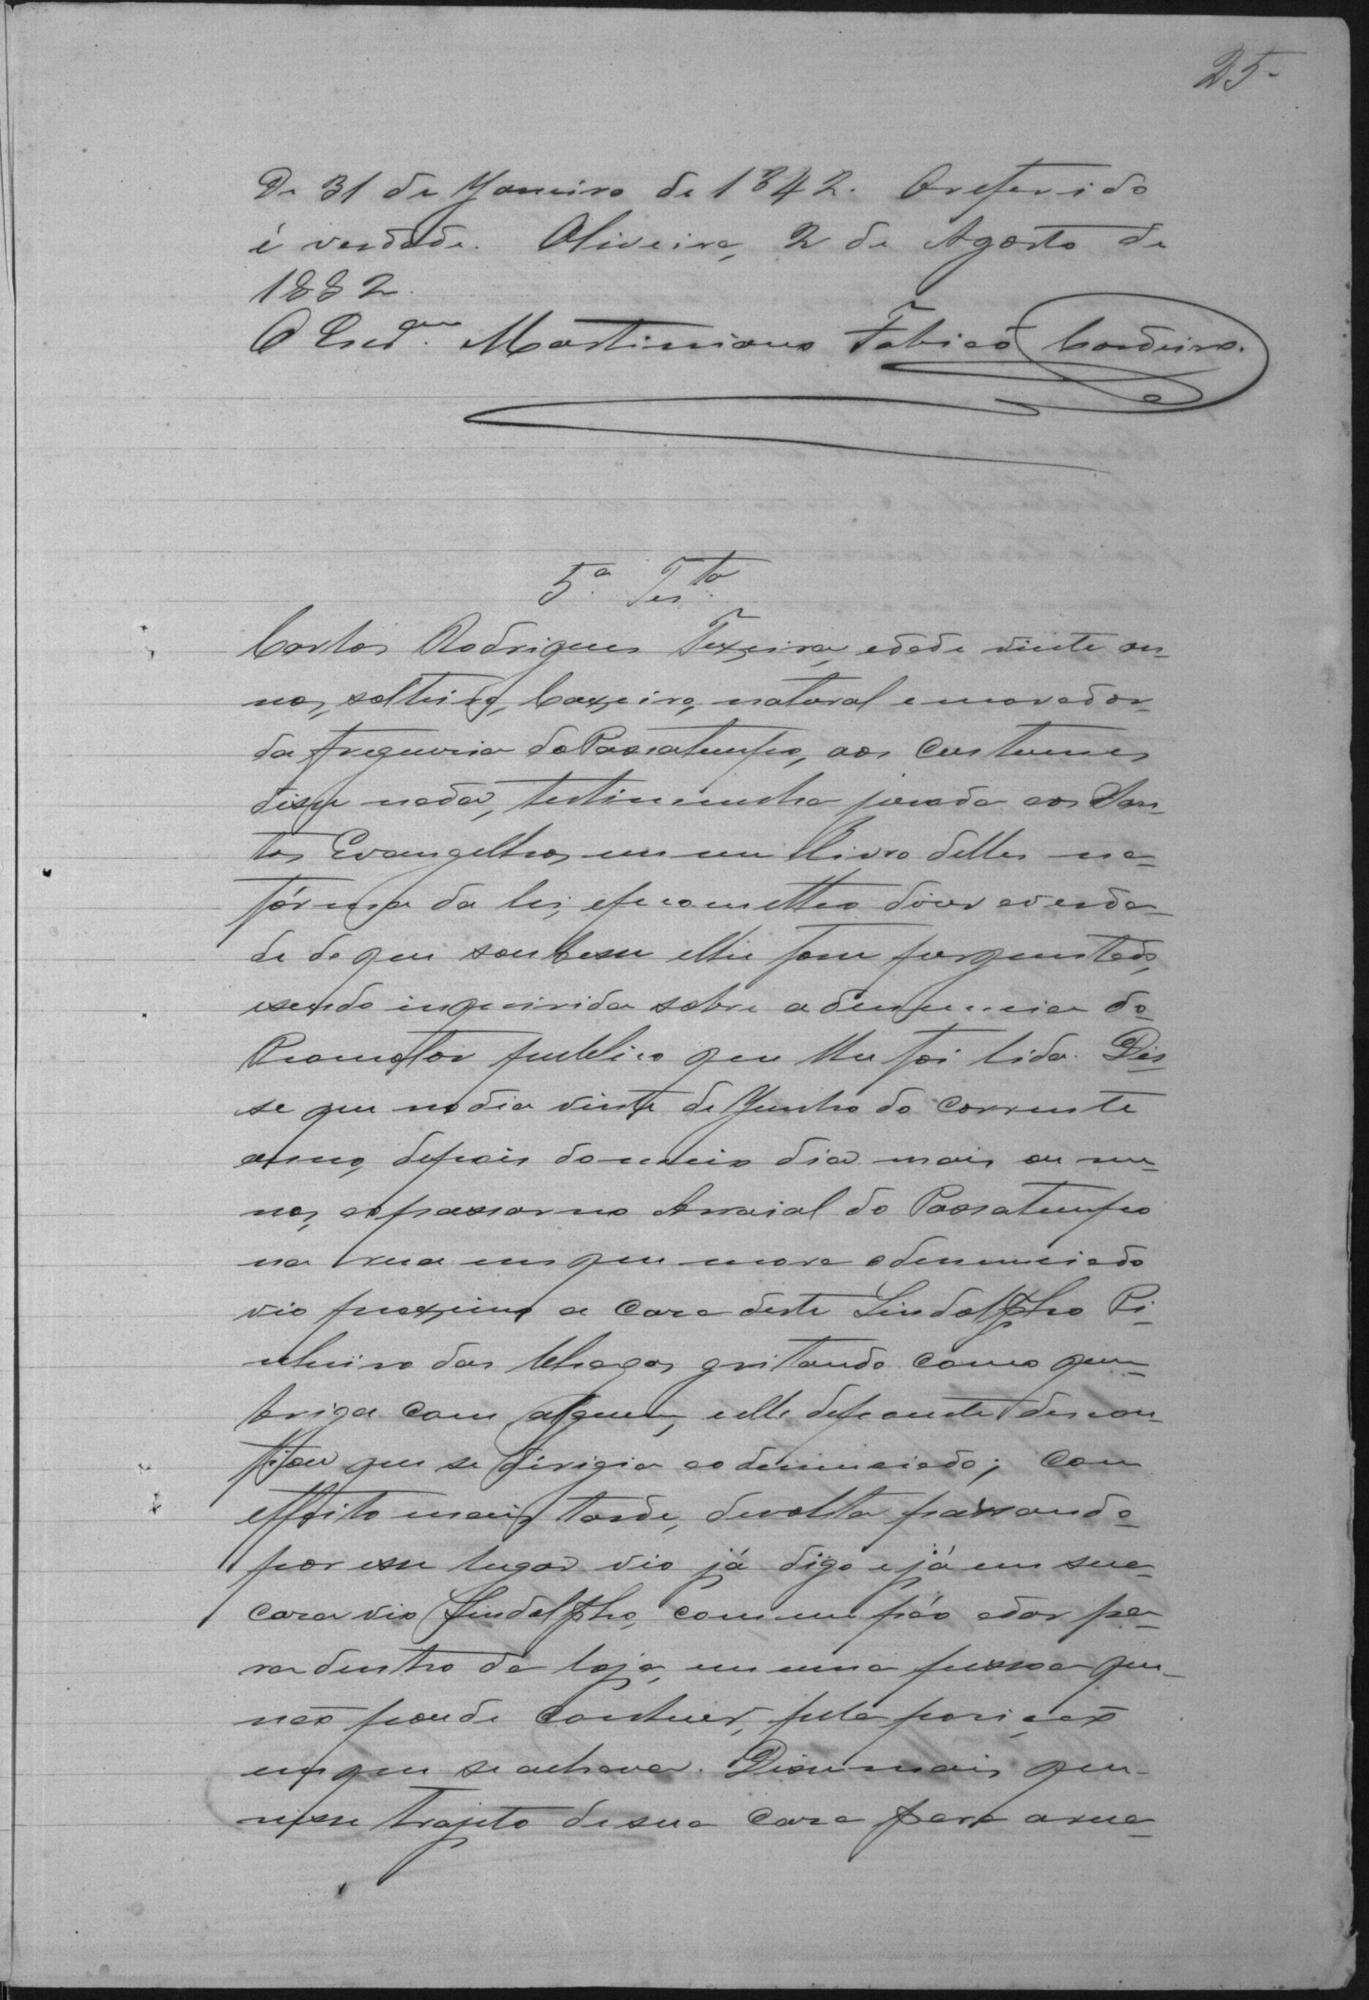 25-
De 31 de Janeiro de 1842. O referido
é verdade. Oliveira, 2 de Agosto de
1882.
O Escr.am Martiniano Fabião Cordeiro.
5ª Testa.
Carlos Rodrigues Texeira, edade vinte an-
nos, solteiro, Caxeiro, natural e morador
da freguesia do Passatempo, aos costumes
disse nada, testimunha jurada aos San-
tos Evangelhos em um livro delles na
fórma da lei, e prometteo dizer a verda-
de do que soubesse e lhe fosse perguntado,
e sendo inquirida sobre a denuncia do
Promotor publico que lhe foi lida. Dis-
se que no dia vinte de Junho do corrente
anno, depois do meio dia mais ou me-
nos, ao passar no Arraial do Passatempo
na rua em que mora o denunciado
vio proximo a casa deste Lindolpho Pi-
nheiro das Chagas, gritando como quem
briga com alguem, e elle depoente descon-
fiou que se dirigia ao denunciado; com
effeito mais tarde, de volta passando
por esse lugar vio já digo e já em sua
casa vio Lindolpho, com um páo a dar pa-
ra dentro da loja, em uma pessoa que
não poude conhecer, pela posição
em que se achava. Disse mais que
nesse trajeto de sua casa para a rua